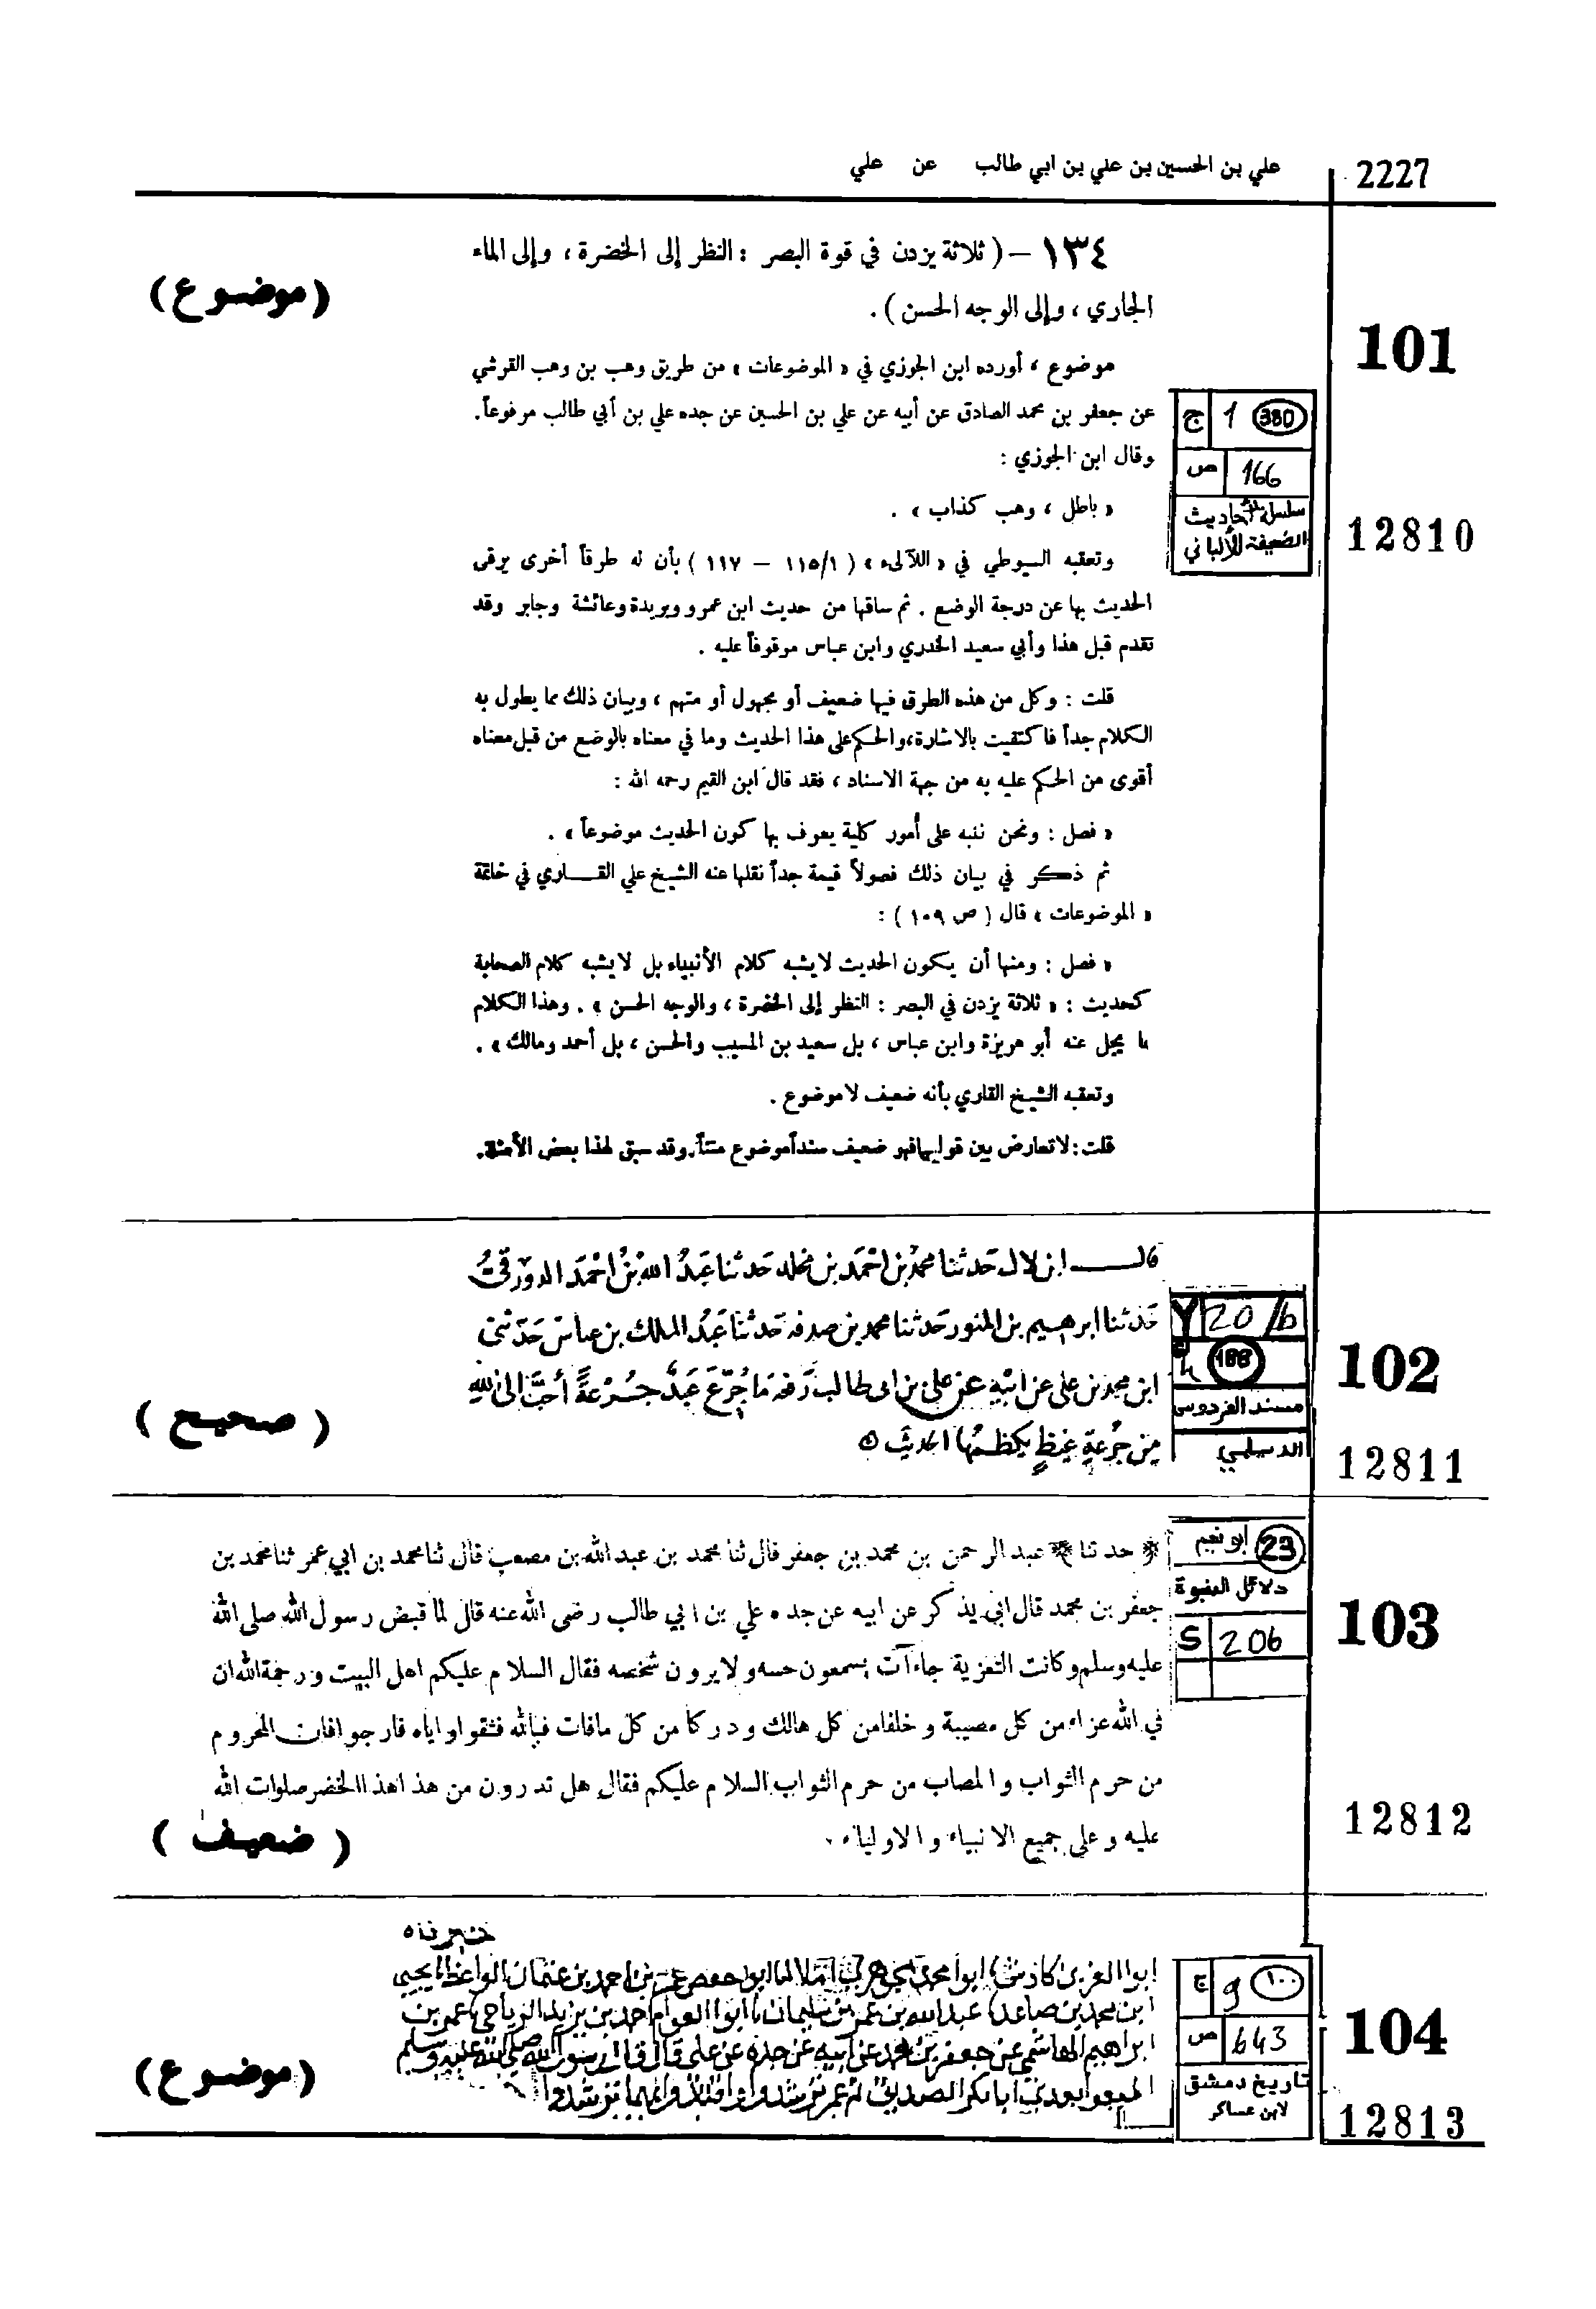 2227
علي بن الحسين بن علي بن ابي طالب عن علي
١٣٤ – ( ثلاثة يزدن في قوة البصر : النظر إلى الخضرة ، وإلى الماء
الجاري ، وإلى الوجه الحسن ) .
( موضوع )
101
12810
ج 1 380
ص 166
سلسلة الأحاديث
الضعيفة للألباني
موضوع ، أورده ابن الجوزي في « الموضوعات » من طريق وهب بن وهب القرشي
عن جعفر بن محمد الصادق عن أبيه عن علي بن الحسين عن جده علي بن أبي طالب مرفوعاً .
وقال ابن الجوزي :
« باطل ، وهب كذاب » .
وتعقبه السيوطي في « اللآلىء » ( ١١٥/١ – ١١٧ ) بأن له طرقاً أخرى يرقى
الحديث بها عن درجة الوضع . ثم ساقها من حديث ابن عمرو وبريدة وعائشة وجابر وقد
تقدم قبل هذا وأبي سعيد الخدري وابن عباس موقوفاً عليه .
قلت : وكل من هذه الطرق فيها ضعيف أو مجهول أو متهم ، وبيان ذلك مما يطول به
الكلام جداً فاكتفيت بالاشارة ، والحكم على هذا الحديث وما في معناه بالوضع من قبل معناه
أقوى من الحكم عليه به من جهة الاسناد ، فقد قال ابن القيم رحمه الله :
« فصل : ونحن ننبه على أمور كلية يعرف بها كون الحديث موضوعاً » .
ثم ذكر في بيان ذلك فصولاً قيمة جداً نقلها عنه الشيخ علي القاري في خاتمة
« الموضوعات » قال ( ص ١٠٩ ) :
« فصل : ومنها أن يكون الحديث لا يشبه كلام الأنبياء بل لا يشبه كلام الصحابة
كحديث : « ثلاثة يزدن في البصر : النظر إلى الخضرة ، والوجه الحسن » . وهذا الكلام
مما يجل عنه أبو هريرة وابن عباس ، بل سعيد بن المسيب والحسن ، بل أحمد ومالك » .
وتعقبه الشيخ القاري بأنه ضعيف لا موضوع .
قلت : لا تعارض بين قوليهما فهو ضعيف سنداً موضوع متناً . وقد سبق لهذا بعض الأمثلة .
102
12811
20/b
188
مسند الفردوس
الديلمي
قال ابن لال حدثنا محمد بن احمد بن مخلد حدثنا عبد الله بن احمد الدورقي
حدثنا ابرهيم بن المنور حدثنا محمد بن صدقه حدثنا عبد الملك بن عباس حدثني
ابن محمد بن علي عن ابيه عن علي بن ابى طالب رفعه ما جرع عبد جرعة أحب الى الله
من جرعة غيظ يكظمها الحديث
( صحيح )
103
12812
ابو نعيم 23
دلائل النبوة
S 206
حدثنا عبد الرحمن بن محمد بن جعفر قال ثنا محمد بن عبد الله بن مصعب قال ثنا محمد بن ابي عمر ثنا محمد بن
جعفر بن محمد قال ابي يذكر عن ابيه عن جده علي بن ابي طالب رضى الله عنه قال لما قبض رسول الله صلى الله
عليه وسلم وكانت التعزية جاء آت يسمعون حسه ولا يرون شخصه فقال السلام عليكم اهل البيت ورحمة الله ان
في الله عزاء من كل مصيبة وخلفا من كل هالك ودركا من كل مافات فبالله فثقوا واياه فارجوا فان المحروم
من حرم الثواب والمصاب من حرم الثواب السلام عليكم فقال هل تدرون من هذا هذا الخضر صلوات الله
عليه وعلى جميع الانبياء والاولياء .
( ضعيف )
104
12813
ج 9 ١٠٠
ص 643
تاريخ دمشق
لابن عساكر
ابو العز بن كادش ابو محمد الجوهري املا انا ابو حفص عمر بن احمد بن عثمان الواعظ يحيى
ابن محمد بن صاعد عبد الله بن عمر بن سليمان ابو العوام احمد بن يزيد الرياحي عمر بن
ابراهيم الهاشمي عن جعفر بن محمد عن ابيه عن جده عن علي قال قال رسول الله صلى الله عليه وسلم
ابا بكر الصديق ثم عمر ترشدوا واقتدوا بهما ترشدوا
( موضوع )